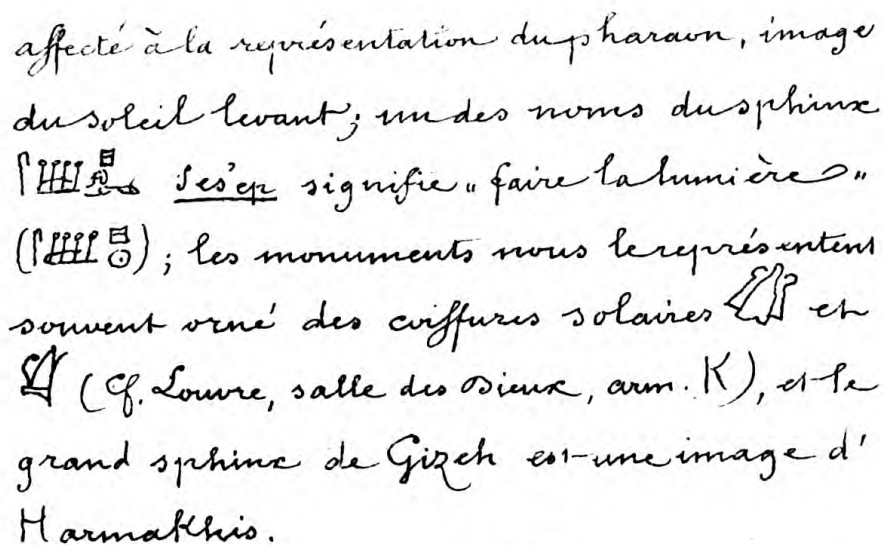 affecté à la représentation du pharaon, image
du soleil levant; un des noms du sphinx
𓋴𓈙𓊪 ses'ep signifie „ faire la lumière „
(𓋴𓈙𓊪𓇳); les monuments nous le représentent
souvent orné des coiffures solaires et
(Cf. Louvre, salle des Dieux, arm. K), et le
grand sphinx de Gizeh est une image d'
Harmakhis.